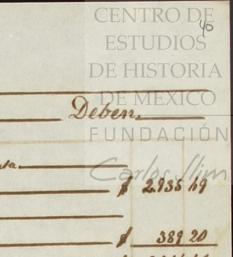 CENTRO DE
ESTUDIOS
DE HISTORIA
DE MEXICO
Deben.
FUNDACIÓN
Carlos Slim
$ 2.935 49
$ 389 20